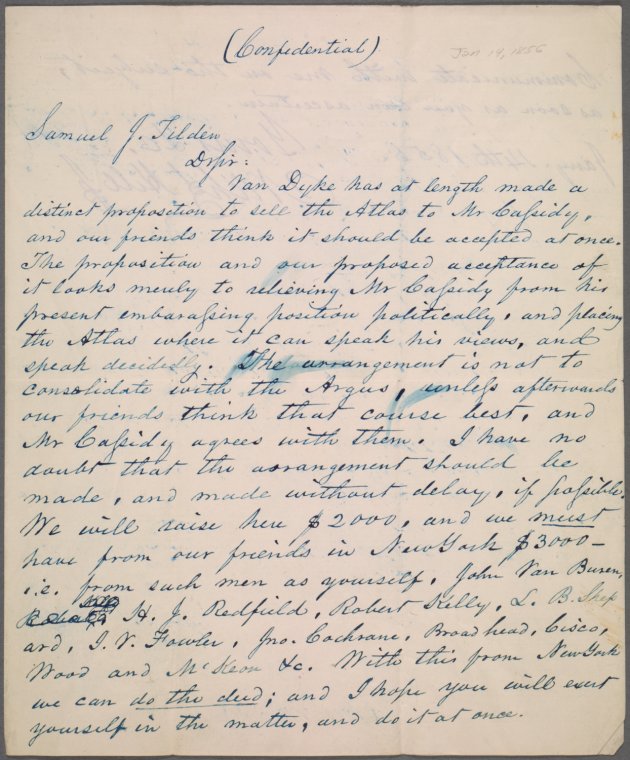 (Confidential)
Jan 14, 1856
Samuel J. Tilden
Dr Sir:
Van Dyke has at length made a
distinct proposition to sell the Atlas to Mr Cassidy,
and our friends think it should be accepted at once.
The proposition and our proposed acceptance of
it looks merely to relieving Mr Cassidy from his
present embarassing position politically, and placing
the Atlas where it can speak his views, and
speak decidedly. The arrangement is not to
consolidate with the Argus, unless afterwards
our friends think that course best, and
Mr Cassidy agrees with them. I have no
doubt that the arrangement should be
made, and made without delay, if possible.
We will raise here $2000, and we must
have from our friends in New York $3000–
i.e. from such men as yourself, John Van Buren,
H. J. Redfield, Robert Kelly, L. B. Shep
ard, I. V. Fowler, Jno. Cochrane, Broadhead, Cisco,
Wood and McKeon &c. With this from New York
we can do the deed; and I hope you will exert
yourself in the matter, and do it at once.